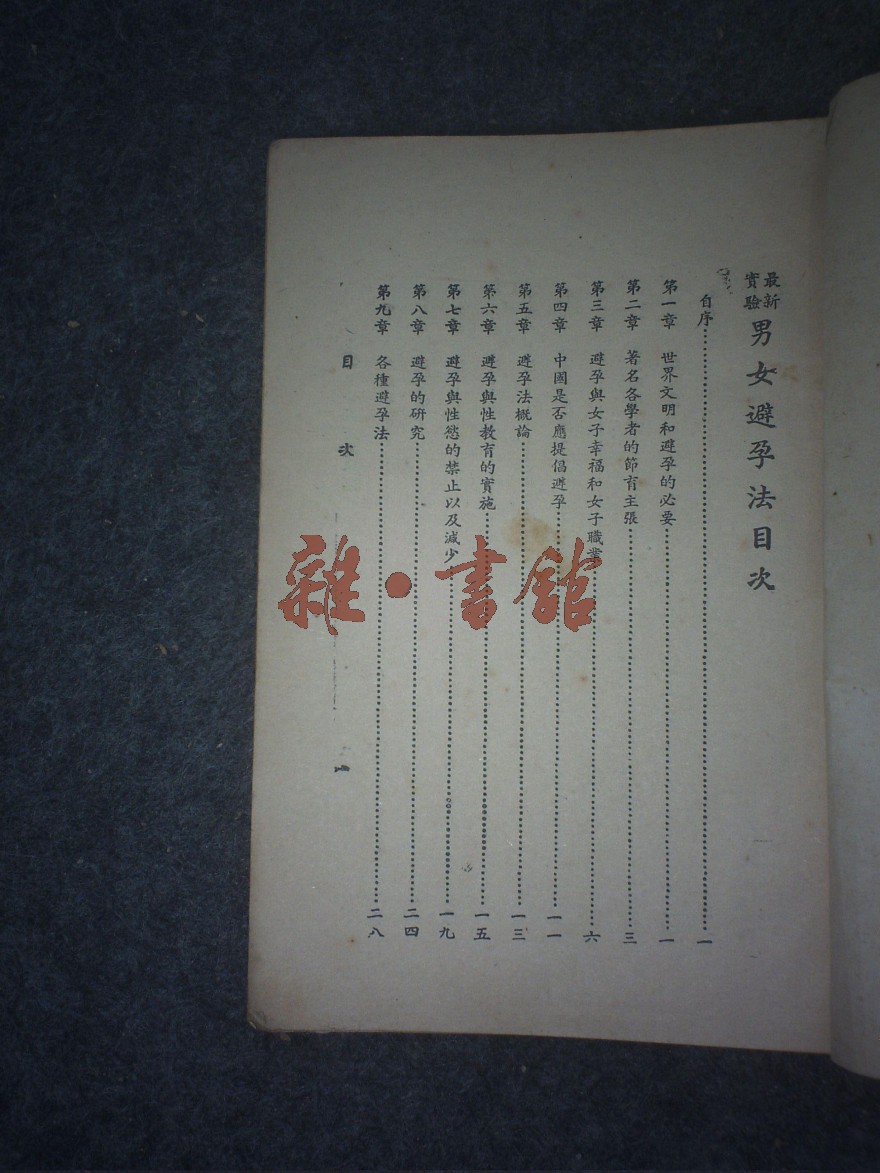 最新實驗男女避孕法目次
自序 一
第一章 世界文明和避孕的必要 一
第二章 著名各學者的節育主張 三
第三章 避孕與女子幸福和女子職業 六
第四章 中國是否應提倡避孕 一一
第五章 避孕法概論 一三
第六章 避孕與性教育的實施 一五
第七章 避孕與性慾的禁止以及減少 一九
第八章 避孕的研究 二四
第九章 各種避孕法 二八
目次 一
雜·書館